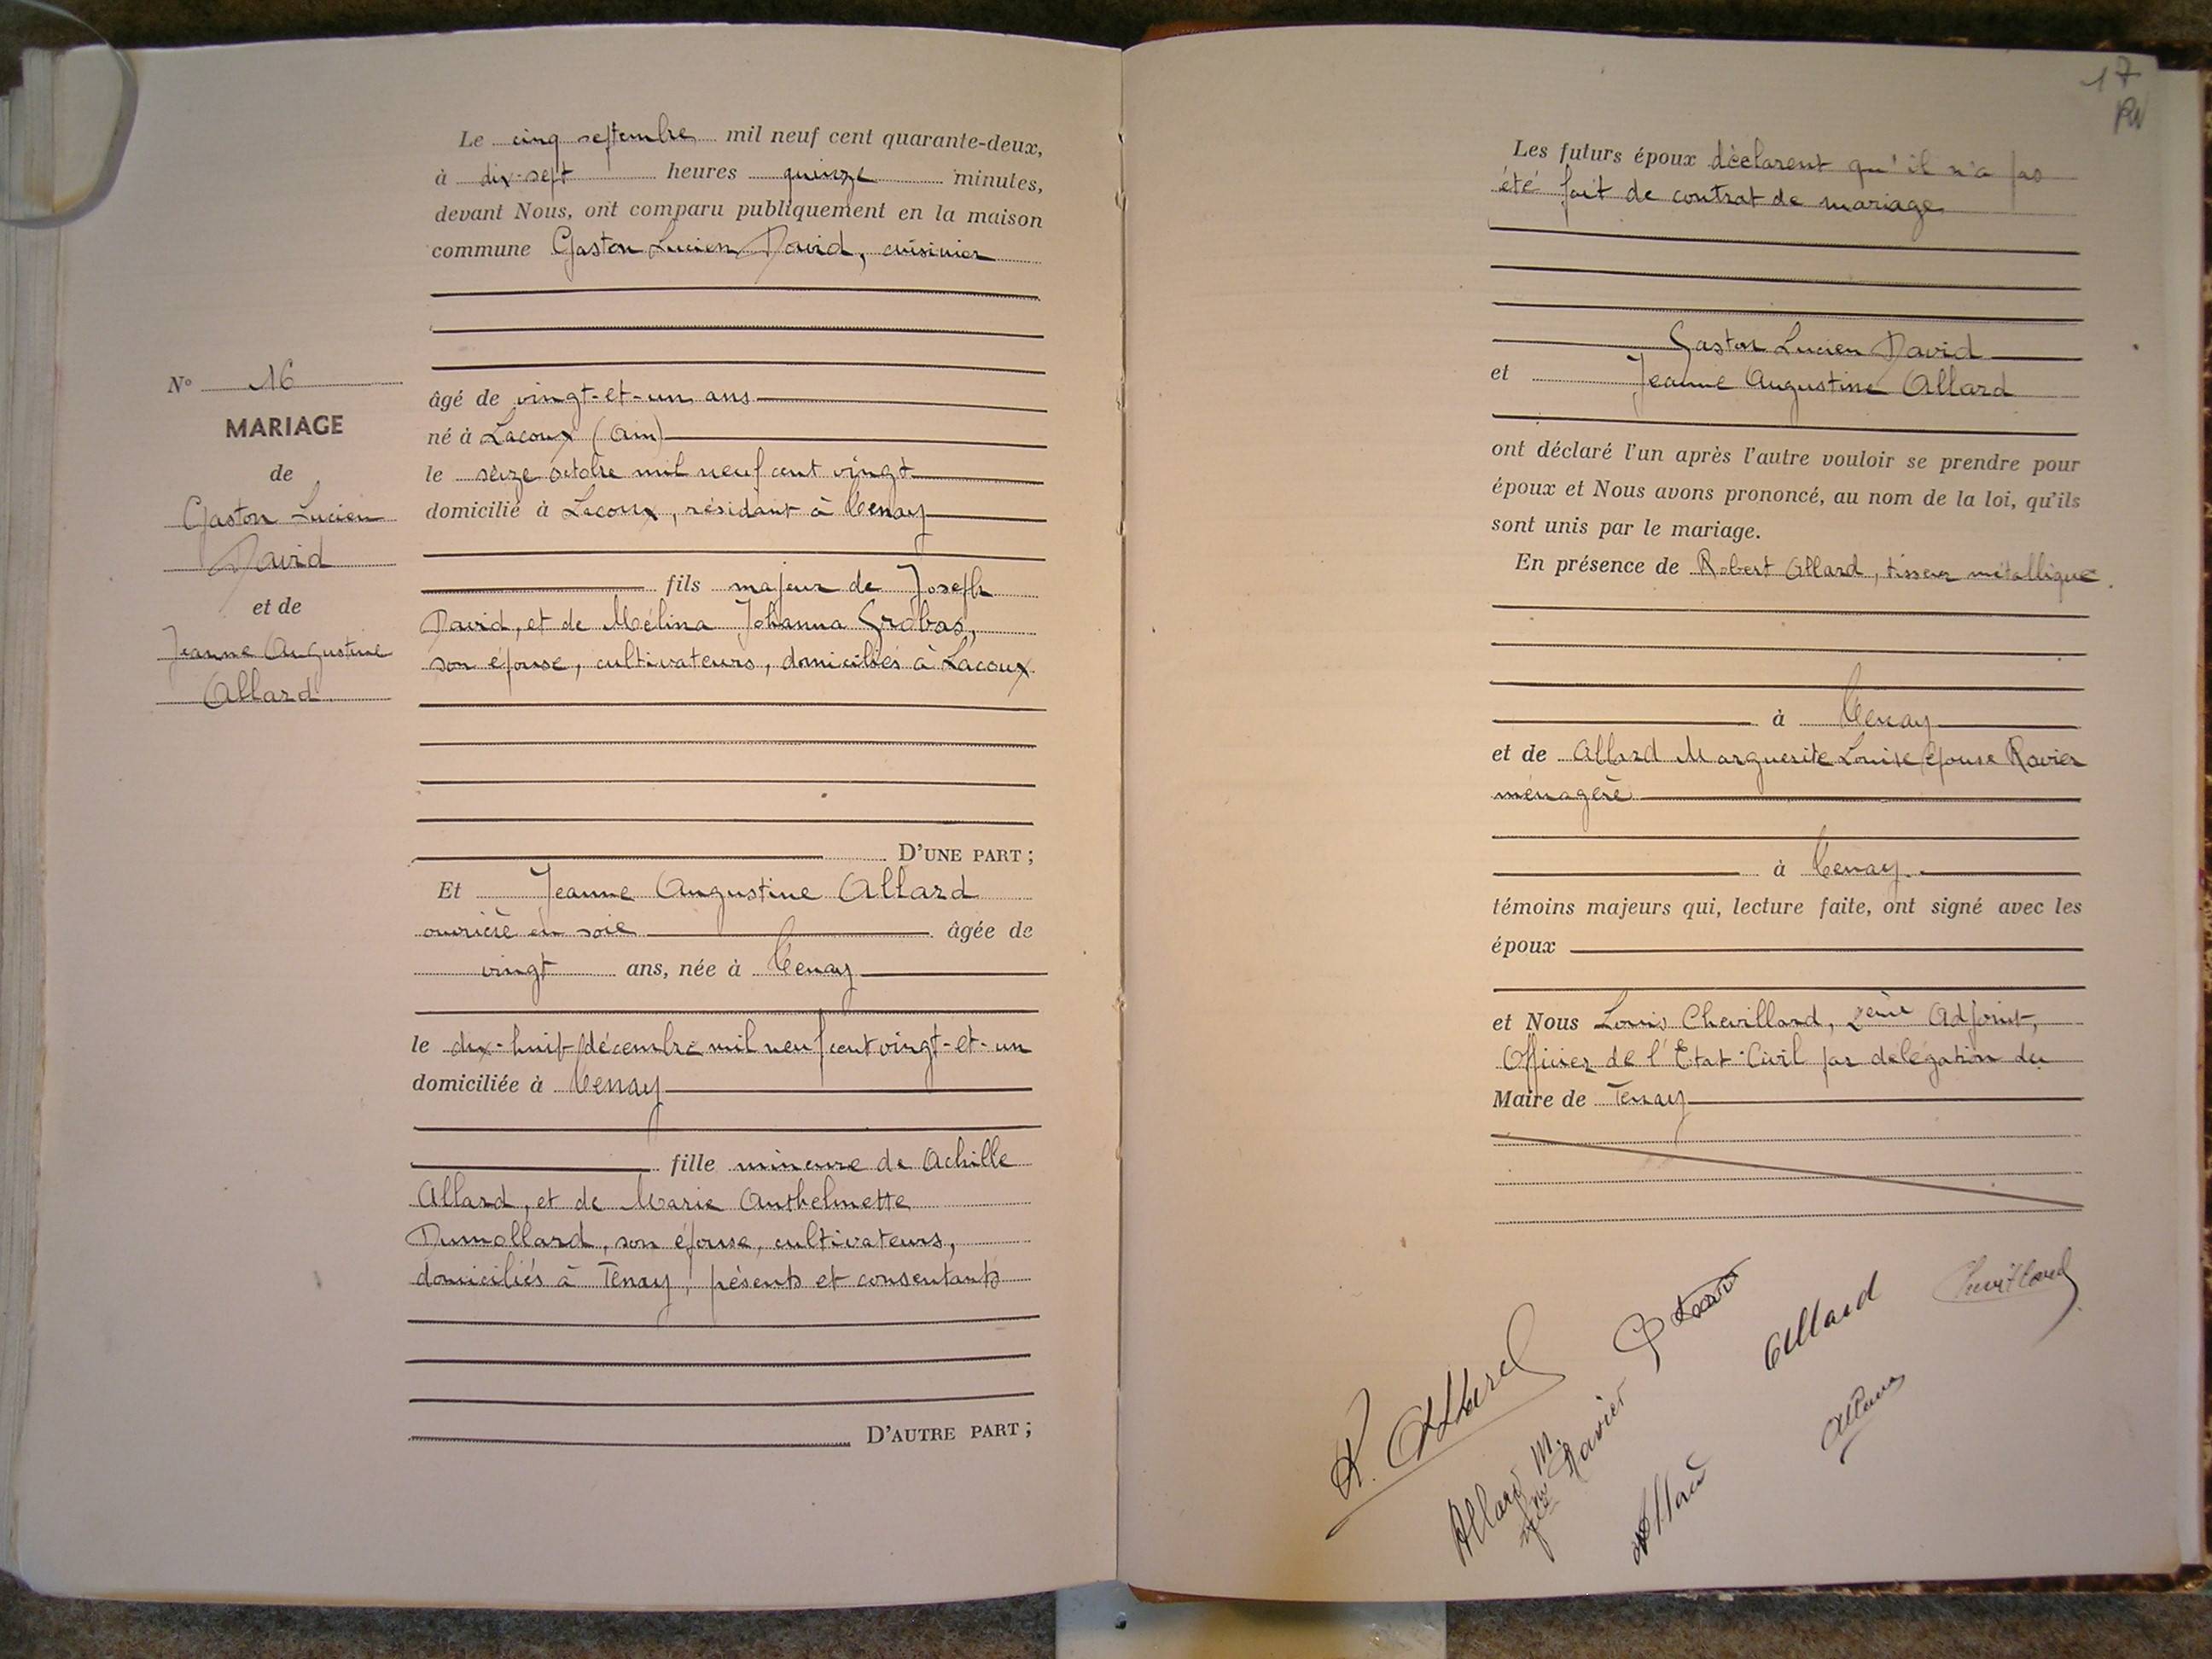 Le cinq septembre mil neuf cent quarante-deux,
à dix-sept heures quinze minutes,
devant Nous, ont comparu publiquement en la maison
commune Gaston Lucien David, cuisinier
N° 16
MARIAGE
de
Gaston Lucien
David
et de
Jeanne Augustine
Allard
âgé de vingt-et-un ans
né à Lacoux (Ain)
le seize octobre mil neuf cent vingt
domicilié à Lacoux, résidant à Tenay
fils majeur de Joseph
David, et de Mélina Johanna Grobas,
son épouse, cultivateurs, domiciliés à Lacoux.
D'UNE PART ;
Et Jeanne Augustine Allard
ouvrière en soie âgée de
vingt ans, née à Tenay
le dix-huit décembre mil neuf cent vingt-et-un
domiciliée à Tenay
fille mineure de Achille
Allard, et de Marie Anthelmette
Dumollard, son épouse, cultivateurs,
domiciliés à Tenay, présents et consentants
D'AUTRE PART ;
17
Les futurs époux déclarent qu'il n'a pas
été fait de contrat de mariage
Gaston Lucien David
et Jeanne Augustine Allard
ont déclaré l'un après l'autre vouloir se prendre pour
époux et Nous avons prononcé, au nom de la loi, qu'ils
sont unis par le mariage.
En présence de Robert Allard, tisseur métallique.
à Tenay
et de Allard Marguerite Louise épouse Ravier
ménagère
à Tenay.
témoins majeurs qui, lecture faite, ont signé avec les
époux
et Nous Louis Chevillard, 2ème Adjoint,
Officier de l'Etat-Civil par délégation du
Maire de Tenay
Chevillard
Allard
R. Allard
Allard M.
Ravier
Allard